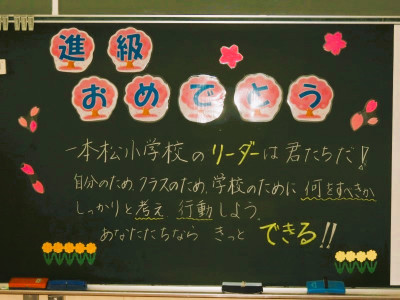 進級
おめでとう
一本松小学校のリーダーは君たちだ!
自分のため、クラスのため、学校のために何をすべきか
しっかりと考え 行動しよう。
あなたたちなら きっと できる!!